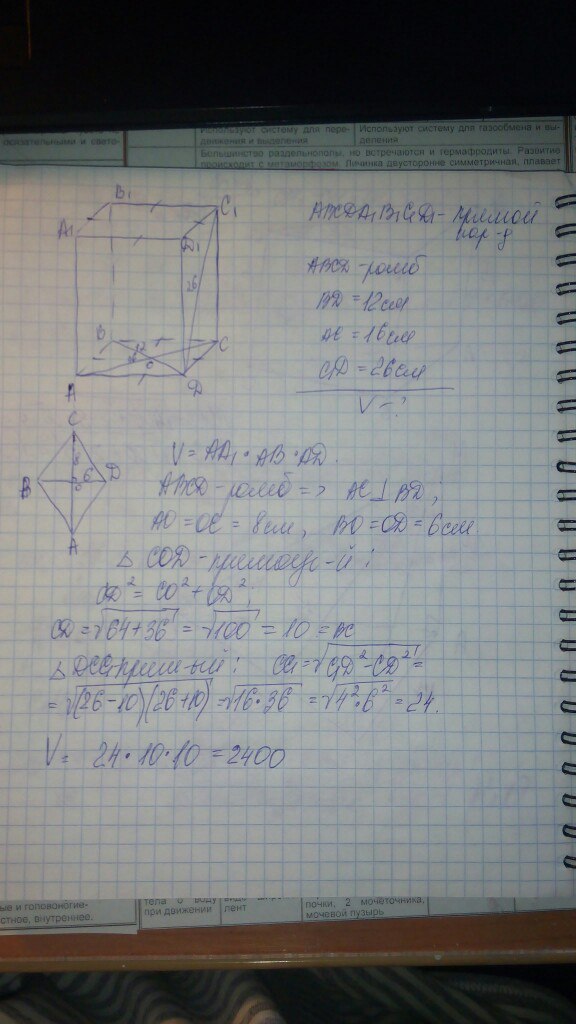 ползательными и свето-
Используют систему для пере-
движения и выделения
Используют систему для газообмена и вы-
деления
Большинство раздельнополы, но встречаются и гермафродиты. Развитие
происходит с метаморфозом. Личинка двусторонне симметричная, плавает
B₁
C₁
A₁
D₁
26
B
C
12
O
A
D
ABCDA₁B₁C₁D₁ - прямой
пар-д
ABCD - ромб
BD = 12см
AC = 16см
C₁D = 26см
V - ?
C
8
B
6
D
O
A
V = AA₁ · AB · AD.
ABCD - ромб => AC ⊥ BD;
AO = OC = 8см, BO = OD = 6см
△ COD - прямоуг-й:
CD² = CO² + OD²;
CD = √64+36 = √100 = 10 = BC
△ DCC₁ прям-ый: CC₁ = √C₁D² - CD² =
= √(26-10)(26+10) = √16·36 = √4²·6² = 24.
V = 24 · 10 · 10 = 2400
ые и головоногие-
стное, внутреннее.
тела о воду
при движении
лент
почки, 2 мочеточника,
мочевой пузырь